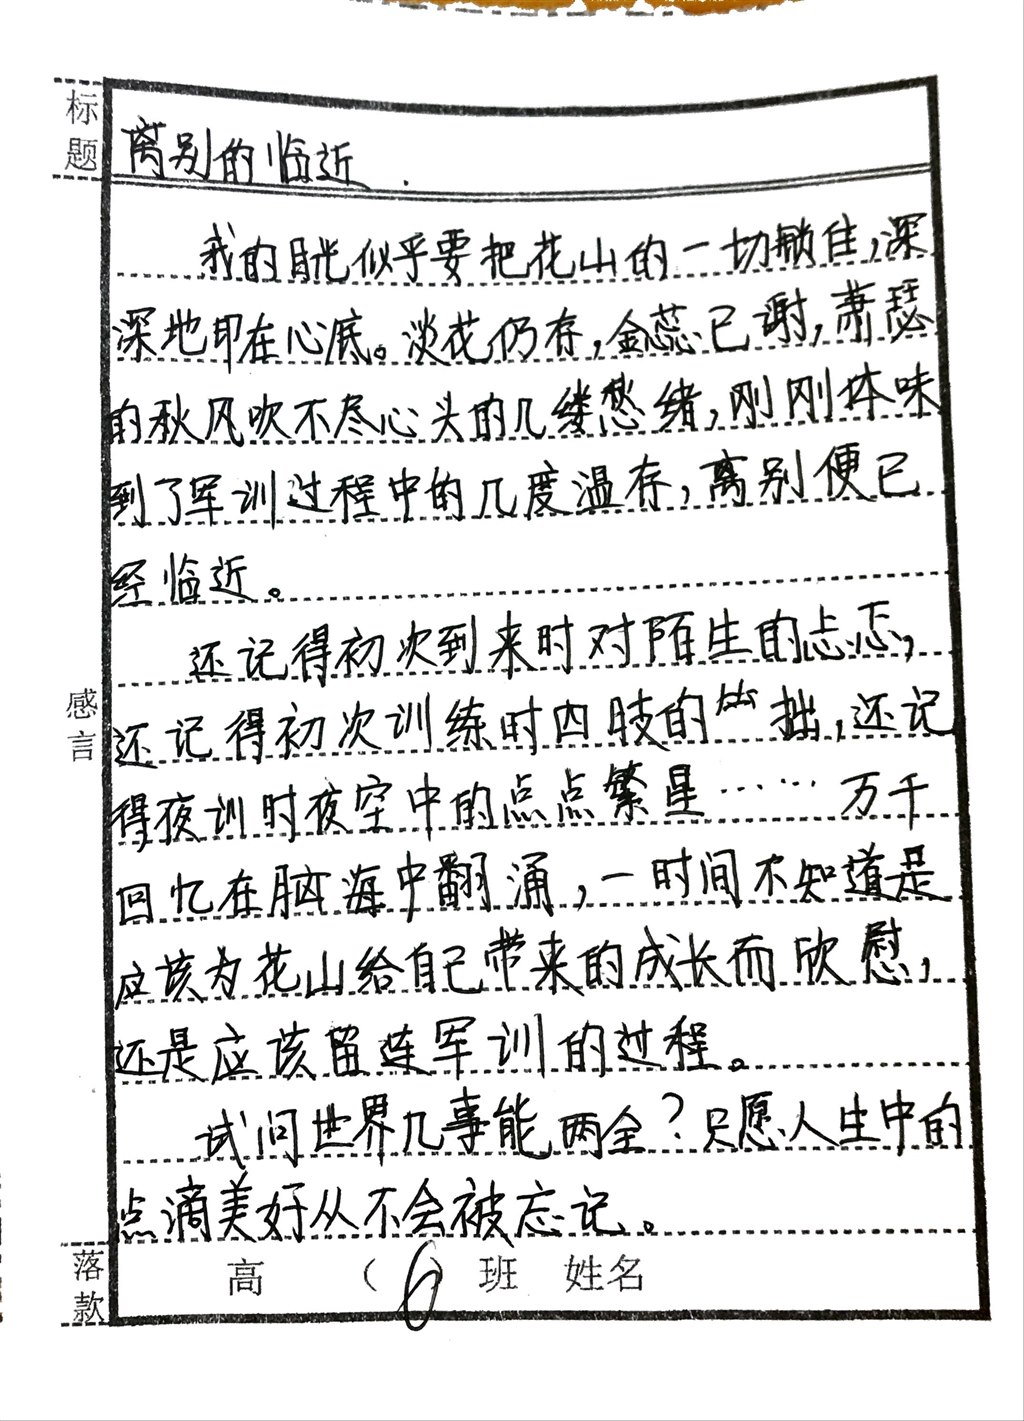 标题
离别的临近.
我的目光似乎要把花山的一切锁住，深
深地印在心底。淡花仍存，金蕊已谢，萧瑟
的秋风吹不尽心头的几缕愁绪，刚刚体味
到了军训过程中的几度温存，离别便已
经临近。
还记得初次到来时对陌生的忐忑，
还记得初次训练时四肢的笨拙，还记
得夜训时夜空中的点点繁星……万千
回忆在脑海中翻涌，一时间不知道是
应该为花山给自己带来的成长而欣慰，
还是应该留连军训的过程。
试问世界几事能两全？只愿人生中的
点滴美好从不会被忘记。
感言
落款
高（6）班 姓名